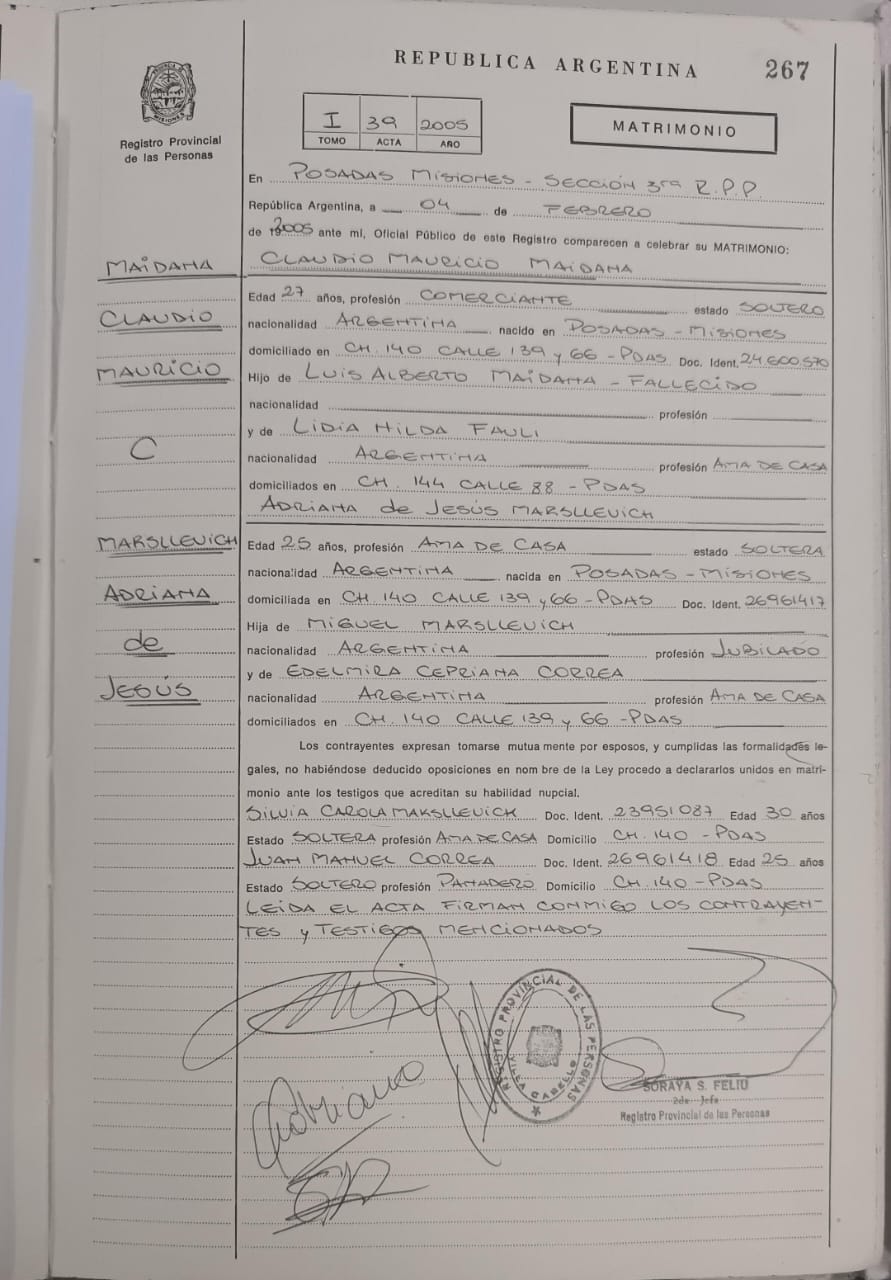 REPUBLICA ARGENTINA
267
PROVINCIA DE MISIONES
Registro Provincial
de las Personas
I 39 2005
TOMO ACTA AÑO
MATRIMONIO
En POSADAS MISIONES - SECCIÓN 3ra R.P.P.
República Argentina, a 04 de FEBRERO
de 2005 ante mí, Oficial Público de este Registro comparecen a celebrar su MATRIMONIO:
MAIDANA
CLAUDIO MAURICIO MAIDANA
Edad 27 años, profesión COMERCIANTE estado SOLTERO
CLAUDIO
nacionalidad ARGENTINA nacido en POSADAS - MISIONES
domiciliado en CH. 140 CALLE 139 y 66 - PDAS Doc. Ident. 24.600.570
MAURICIO
Hijo de LUIS ALBERTO MAIDANA - FALLECIDO
nacionalidad profesión
y de LIDIA HILDA FAULI
C
nacionalidad ARGENTINA profesión AMA DE CASA
domiciliados en CH. 144 CALLE 88 - PDAS
ADRIANA de JESÚS MARSLLEVICH
MARSLLEVICH
Edad 25 años, profesión AMA DE CASA estado SOLTERA
nacionalidad ARGENTINA nacida en POSADAS - MISIONES
ADRIANA
domiciliada en CH. 140 CALLE 139 y 66 - PDAS Doc. Ident. 26961417
Hija de MIGUEL MARSLLEVICH
de
nacionalidad ARGENTINA profesión JUBILADO
y de EDELMIRA CEPRIANA CORREA
JESÚS
nacionalidad ARGENTINA profesión AMA DE CASA
domiciliados en CH. 140 CALLE 139 y 66 - PDAS
Los contrayentes expresan tomarse mutua mente por esposos, y cumplidas las formalidades le-
gales, no habiéndose deducido oposiciones en nom bre de la Ley procedo a declararlos unidos en matri-
monio ante los testigos que acreditan su habilidad nupcial.
SILVIA CAROLA MARSLLEVICH Doc. Ident. 23951087 Edad 30 años
Estado SOLTERA profesión AMA DE CASA Domicilio CH. 140 - PDAS
JUAN MANUEL CORREA Doc. Ident. 26961418 Edad 25 años
Estado SOLTERO profesión PANADERO Domicilio CH. 140 - PDAS
LEIDA EL ACTA FIRMAN CONMIGO LOS CONTRAYEN-
TES y TESTIGOS MENCIONADOS
REGISTRO PROVINCIAL DE LAS PERSONAS
VILLA CABELLO
Adriana
SORAYA S. FELIU
2da Jefa
Registro Provincial de las Personas